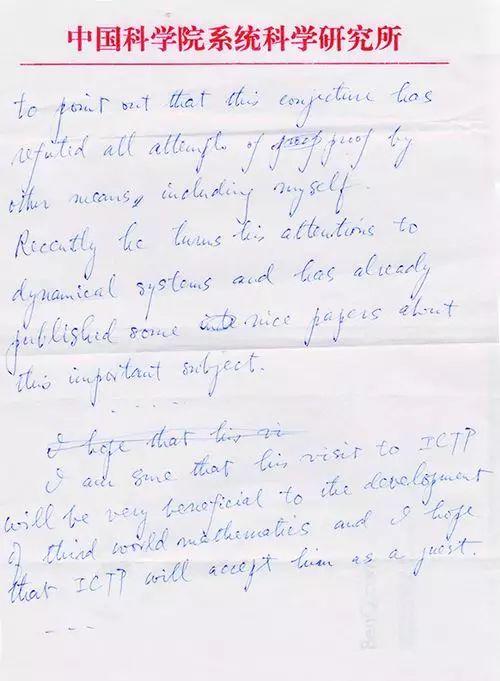 中国科学院系统科学研究所
to point out that this conjecture has
refuted all attempts of proof proof by
other means, including myself.
Recently he turns his attentions to
dynamical systems and has already
published some nice papers about
this important subject.
. . . . .
I hope that his vi
I am sure that his visit to ICTP
will be very beneficial to the development
of third world mathematics and I hope
that ICTP will accept him as a guest.
- - -